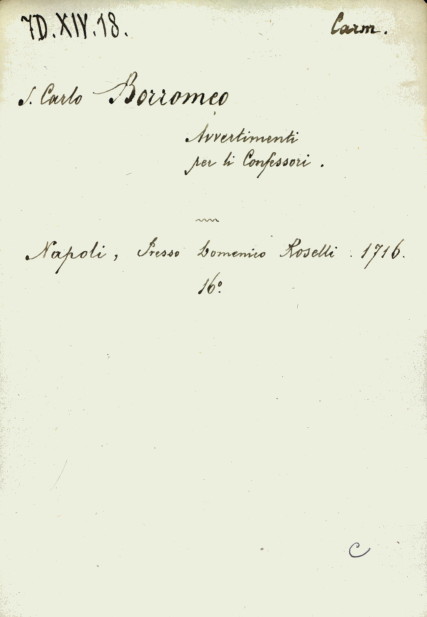 7D.XIV.18.
Carm.
S. Carlo Borromeo
Avvertimenti
per li Confessori.
Napoli, Presso Domenico Roselli. 1716.
16º
C